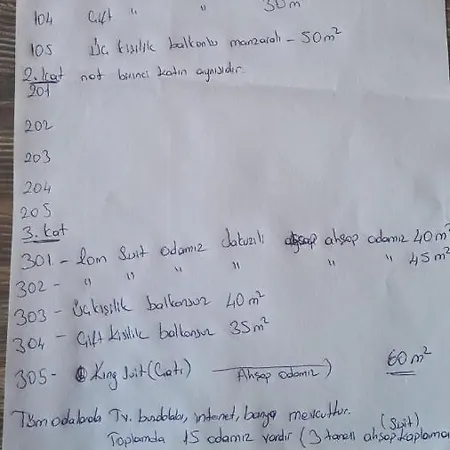 104 Çift " " 30m
105 Üç kişilik balkonlu manzaralı - 50m²
2. kat not birinci katın aynısıdır.
201
202
203
204
205
3. kat
301 - Suit odamız Jakuzili ahşap odamız 40m²
302 - " " " " " " 45m²
303 - Üç kişilik balkonsuz 40m²
304 - Çift kişilik balkonsuz 35m²
305 - King Suit (Çatı) Ahşap odamız 60m²
Tüm odalarda Tv. buzdolabı, internet, banyo mevcuttur.
(Suit)
Toplamda 15 odamız vardır (3 tanesi ahşap kaplama